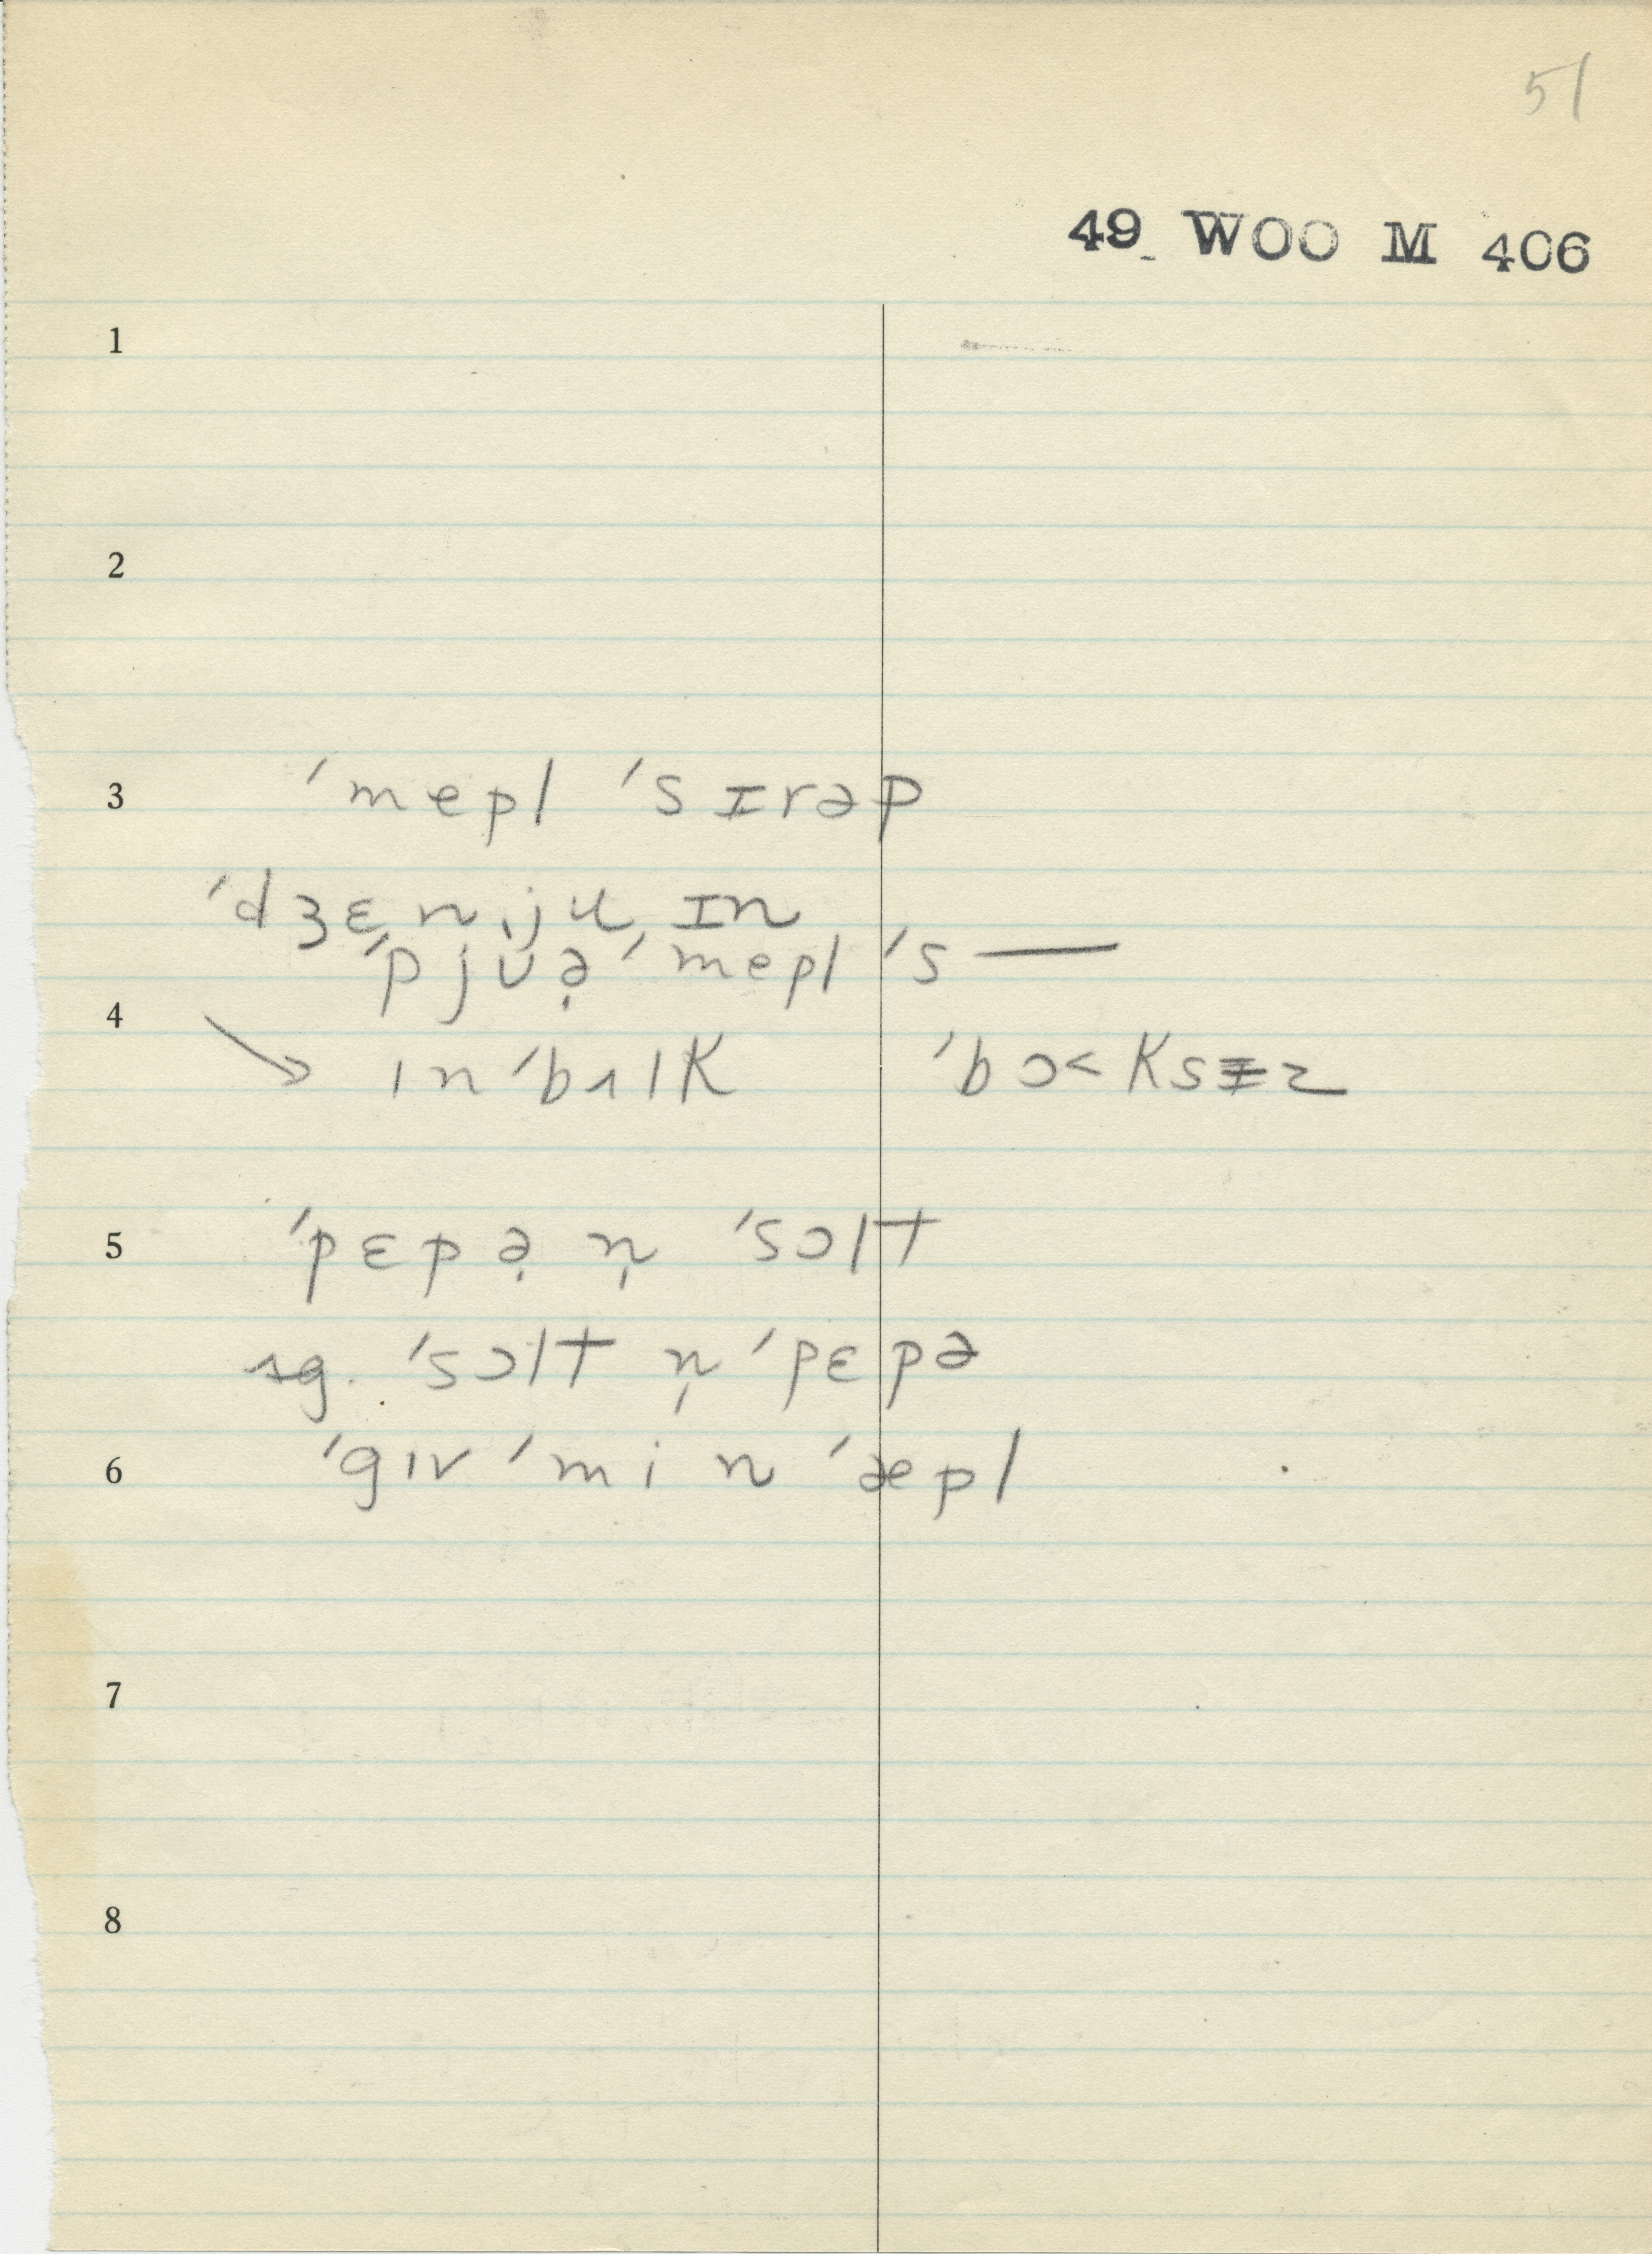 51
49 WOO M 406
1
2
3 ˈmepl ˈsɪrəp
ˈdʒɛnjʉɪn
ˈpjʊə̣ ˈmepl ˈs —
4
→ ınˈbʌlk ˈbɔ˂ksɪ̵z
5 ˈpɛpə̣ n̩ ˈsɔlt
sg. ˈsɔlt n̩ ˈpɛpə
6 ˈgıv ˈmi n ˈæpl
7
8